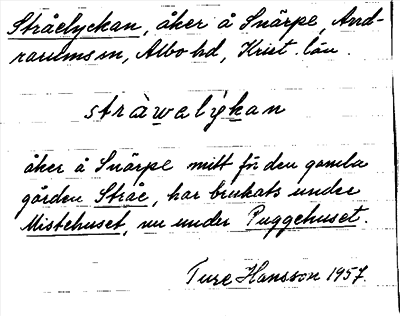 Stråelyckan, åker å Snärpe, And-
rarums sn, Albo hd, Krist. län.
stràwalykan
åker å Snärpe mitt för den gamla
gården Stråe, har brukats under
Mistehuset, nu under Puggehuset.
Ture Hansson 1957.